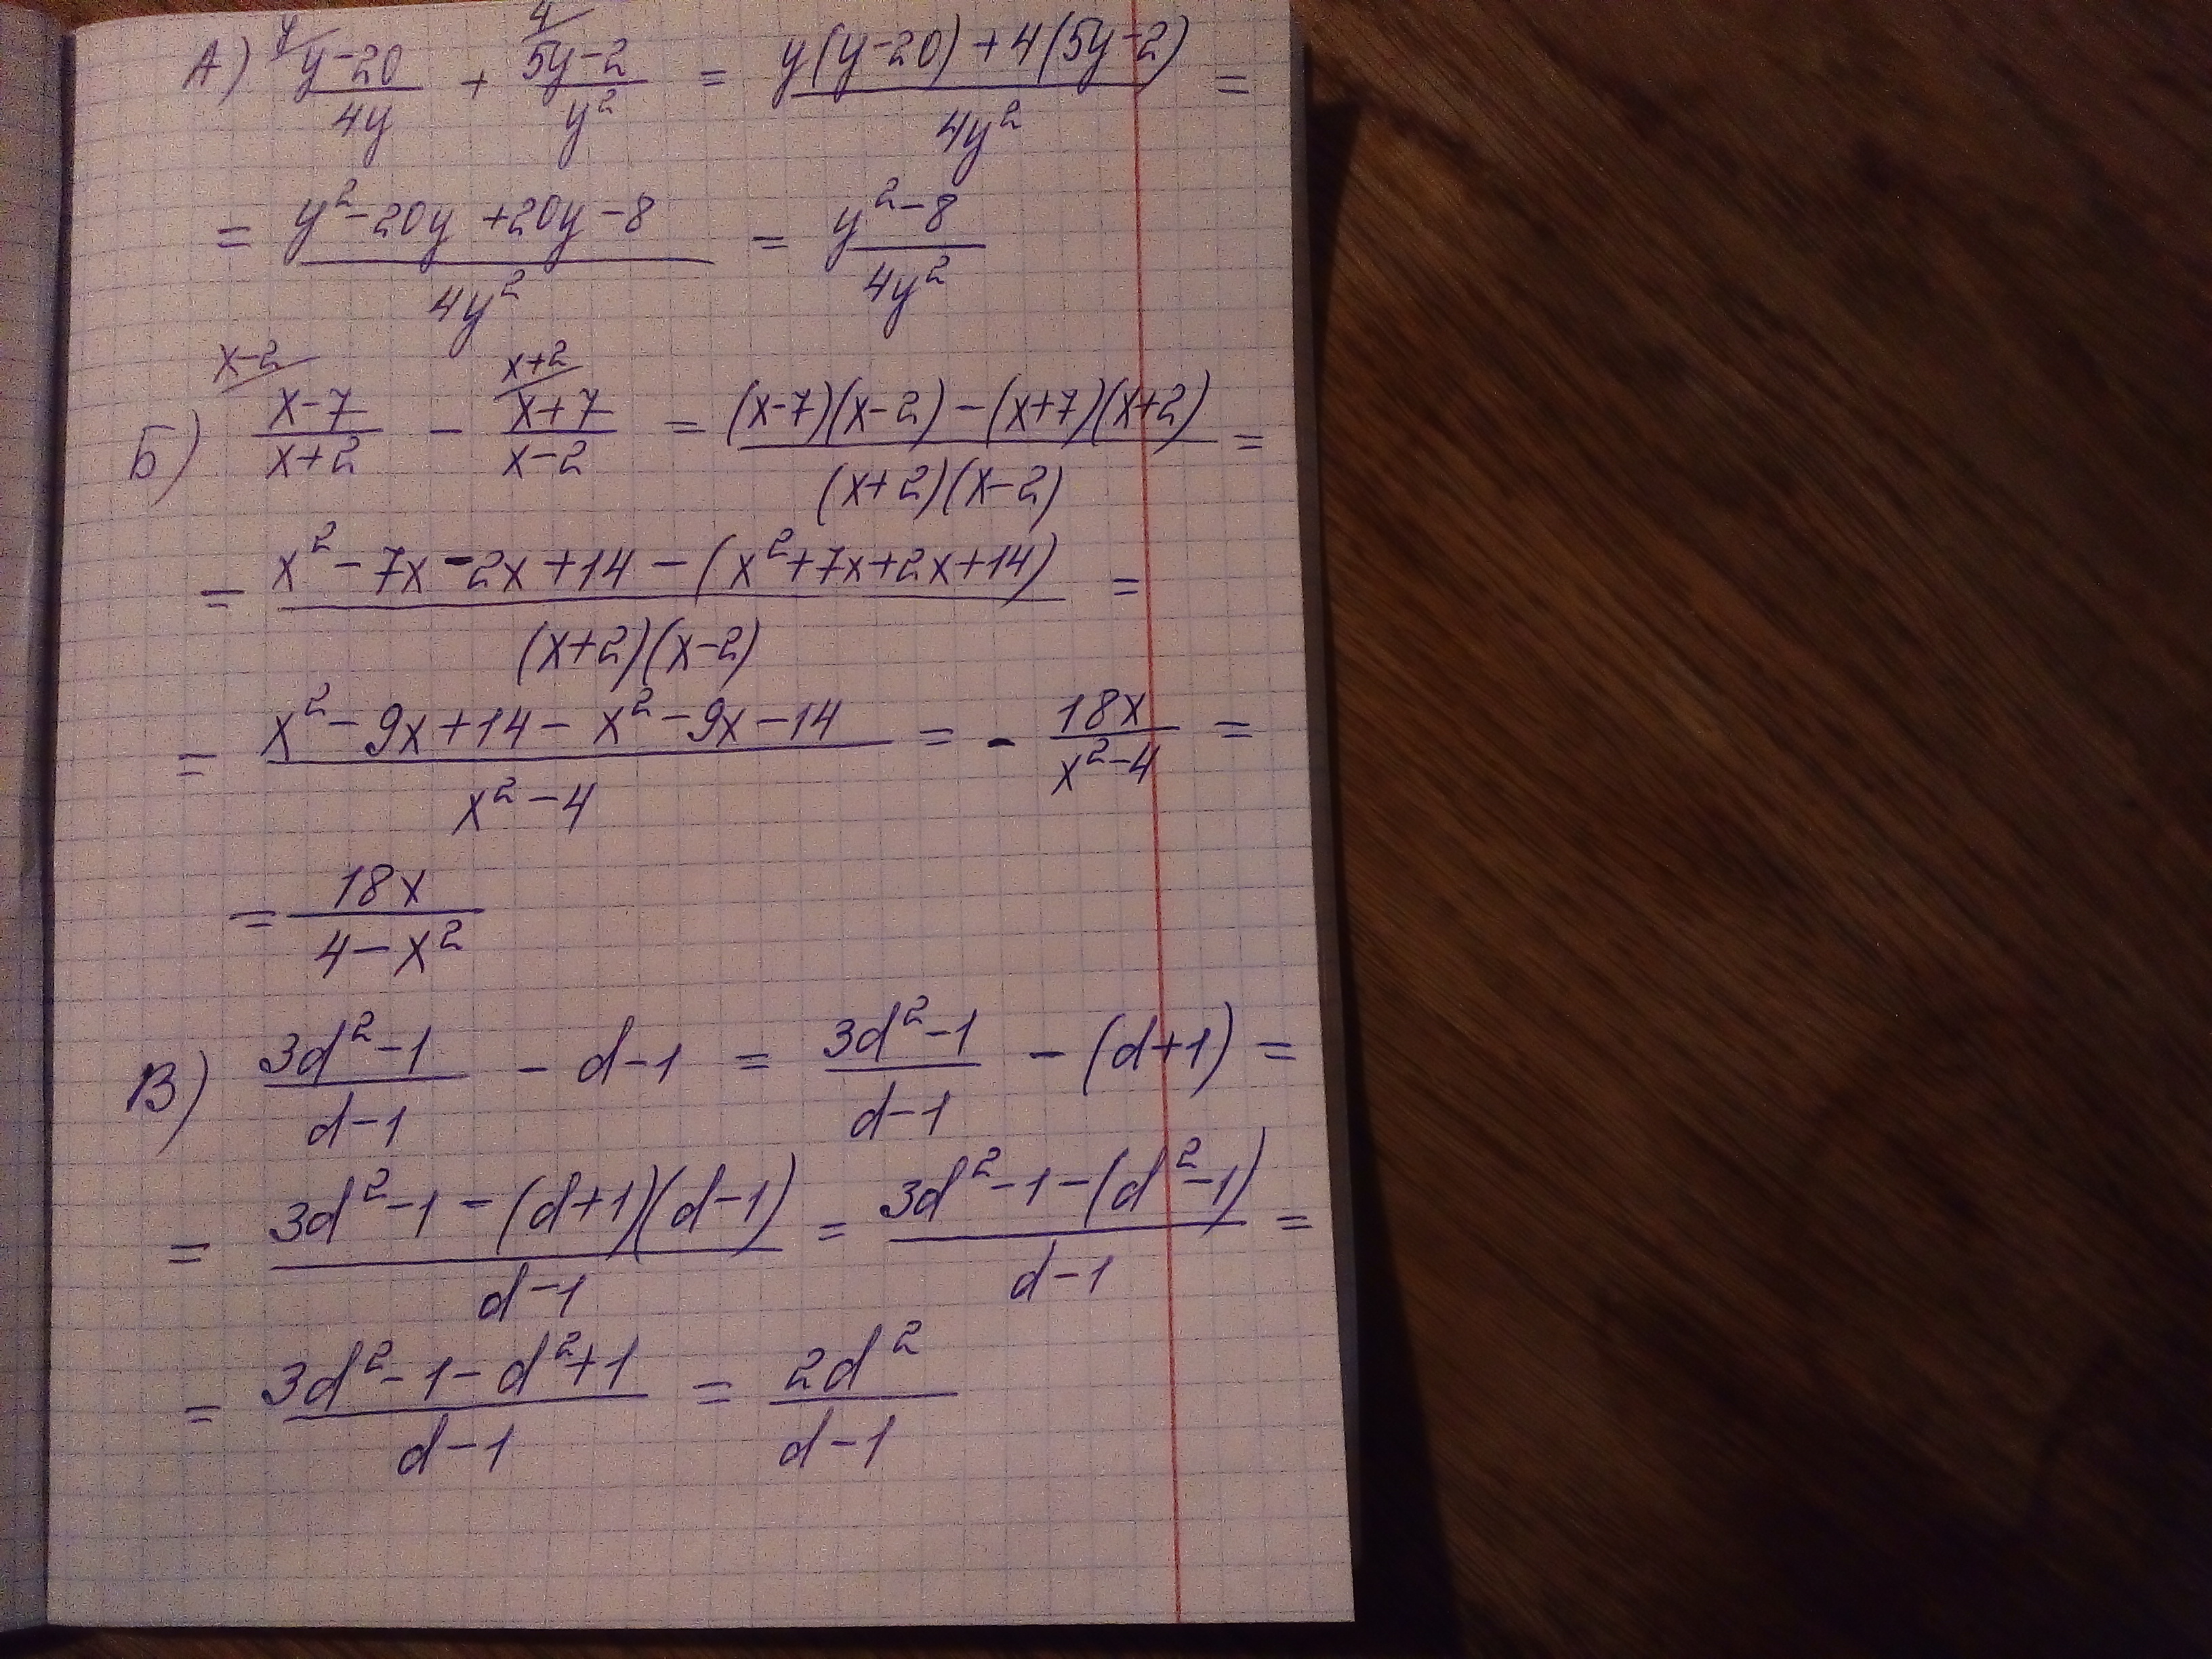 А) y/ (y-20)/(4y) + 4/ (5y-2)/(y²) = (y(y-20)+4(5y-2))/(4y²) =
= (y²-20y+20y-8)/(4y²) = (y²-8)/(4y²)
Б) x-2/ (x-7)/(x+2) - x+2/ (x+7)/(x-2) = ((x-7)(x-2)-(x+7)(x+2))/((x+2)(x-2)) =
= (x²-7x-2x+14-(x²+7x+2x+14))/((x+2)(x-2)) =
= (x²-9x+14-x²-9x-14)/(x²-4) = - (18x)/(x²-4) =
= (18x)/(4-x²)
В) (3d²-1)/(d-1) - d-1 = (3d²-1)/(d-1) - (d+1) =
= (3d²-1-(d+1)(d-1))/(d-1) = (3d²-1-(d²-1))/(d-1) =
= (3d²-1-d²+1)/(d-1) = (2d²)/(d-1)